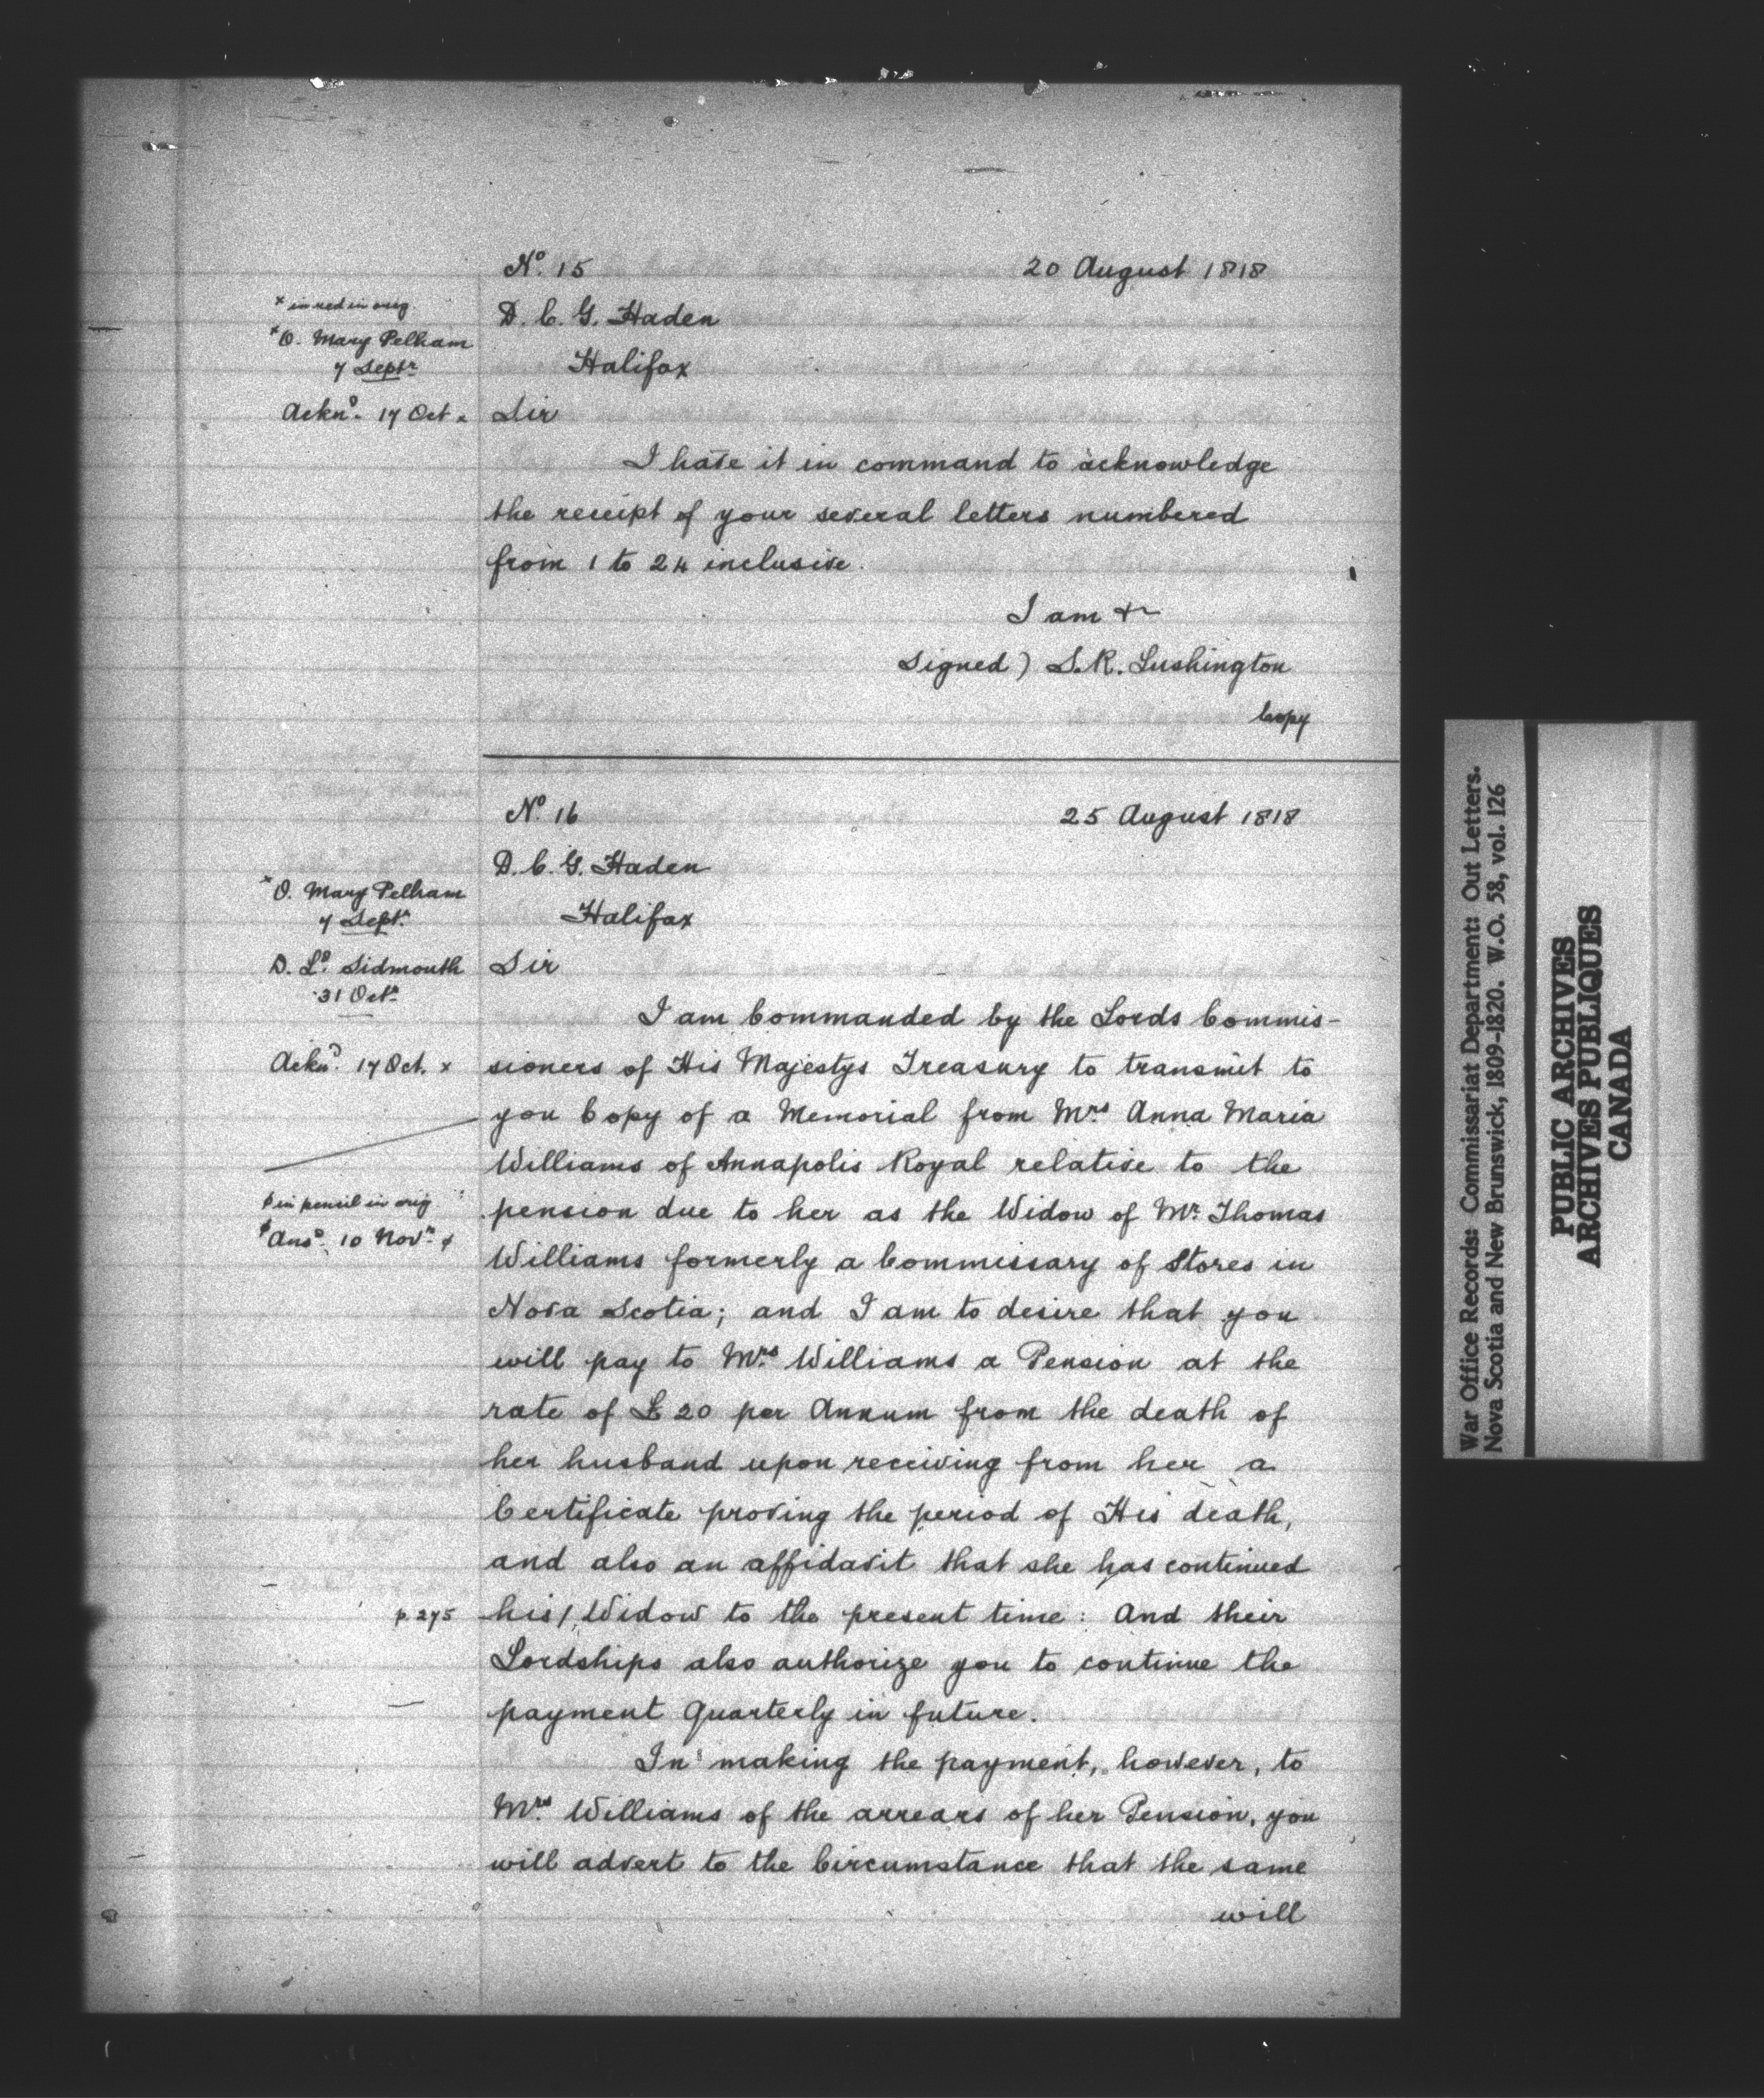 No. 15 20 August 1818
x in red in orig
D. C. G. Haden
x O. Mary Pelham
7 Septr
Halifax
Acknd. 17 Oct x
Sir
I have it in command to acknowledge
the receipt of your several letters numbered
from 1 to 24 inclusive.
I am &c
Signed) S. R. Lushington
Copy
No. 16 25 August 1818
D. C. G. Haden
x O. Mary Pelham
7 Septr.
Halifax
D. Ld. Sidmouth
31 Octr.
Sir
I am Commanded by the Lords Commis-
Acknd. 17 Oct. x
sioners of His Majestys Treasury to transmit to
you Copy of a Memorial from Mrs Anna Maria
Williams of Annapolis Royal relative to the
ϕ in pencil in orig
pension due to her as the Widow of Mr. Thomas
ϕ Ansd. 10 Novr. ϕ
Williams formerly a Commissary of Stores in
Nova Scotia; and I am to desire that you
will pay to Mrs. Williams a Pension at the
rate of £20 per Annum from the death of
her husband upon receiving from her a
Certificate proving the period of His death,
and also an affidavit that she has continued
p. 275
his/ Widow to the present time: And their
Lordships also authorize you to continue the
payment Quarterly in future.
In making the payment, however, to
Mrs. Williams of the arrears of her Pension, you
will advert to the Circumstance that the same
will
War Office Records: Commissariat Department: Out Letters.
Nova Scotia and New Brunswick, 1809-1820. W.O. 58, vol. 126
PUBLIC ARCHIVES
ARCHIVES PUBLIQUES
CANADA